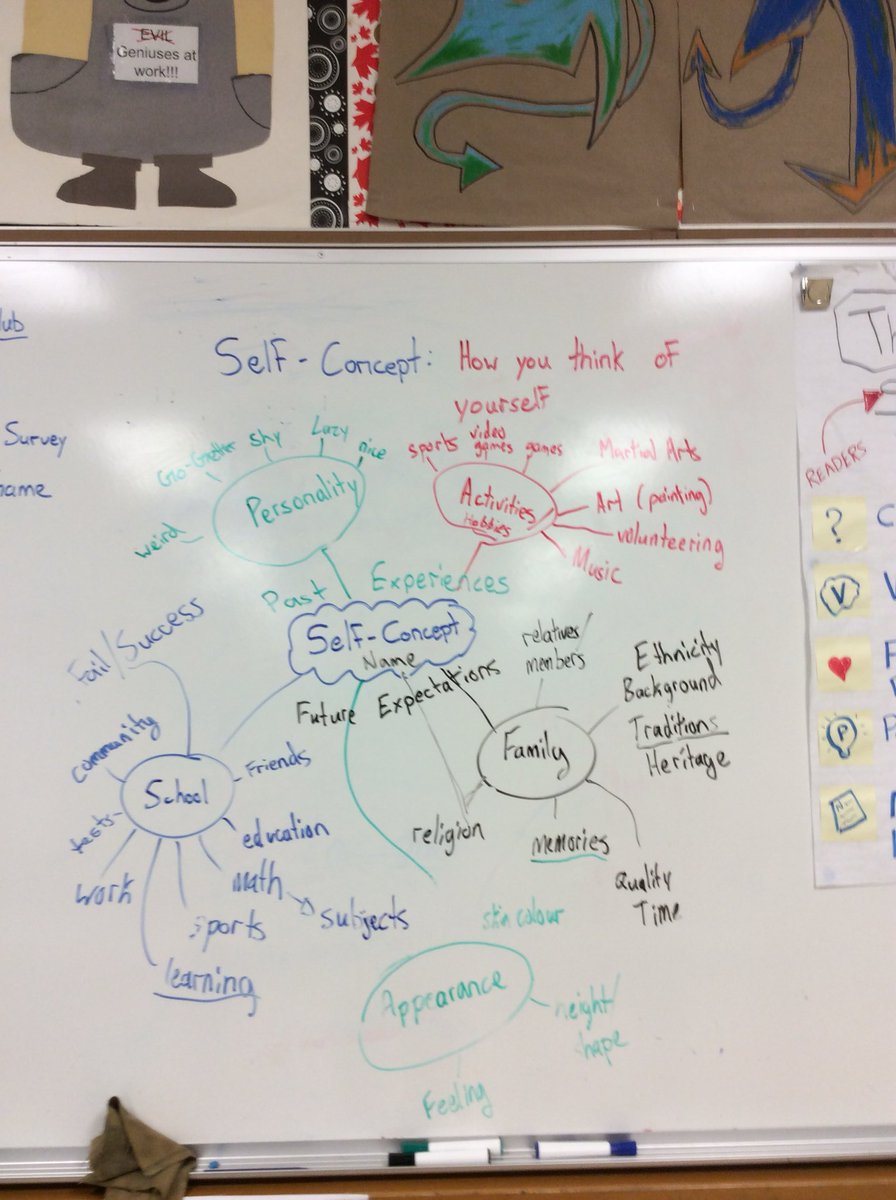 EVIL
Geniuses at
work!!!
Survey
Self-Concept: How you think of
yourself
shy
Lazy
nice
weird
Personality
sports
video
games
games
Martial Arts
Art (painting)
volunteering
Music
Activities
Hobbies
Past Experiences
Self-Concept
Name
Future Expectations
Fail/Success
community
tests
work
learning
sports
math
subjects
education
Friends
School
relatives/
members
Ethnicity
Background
Traditions
Heritage
Family
religion
memories
Quality
Time
skin colour
Appearance
height/
shape
Feeling
READERS
?
V
P